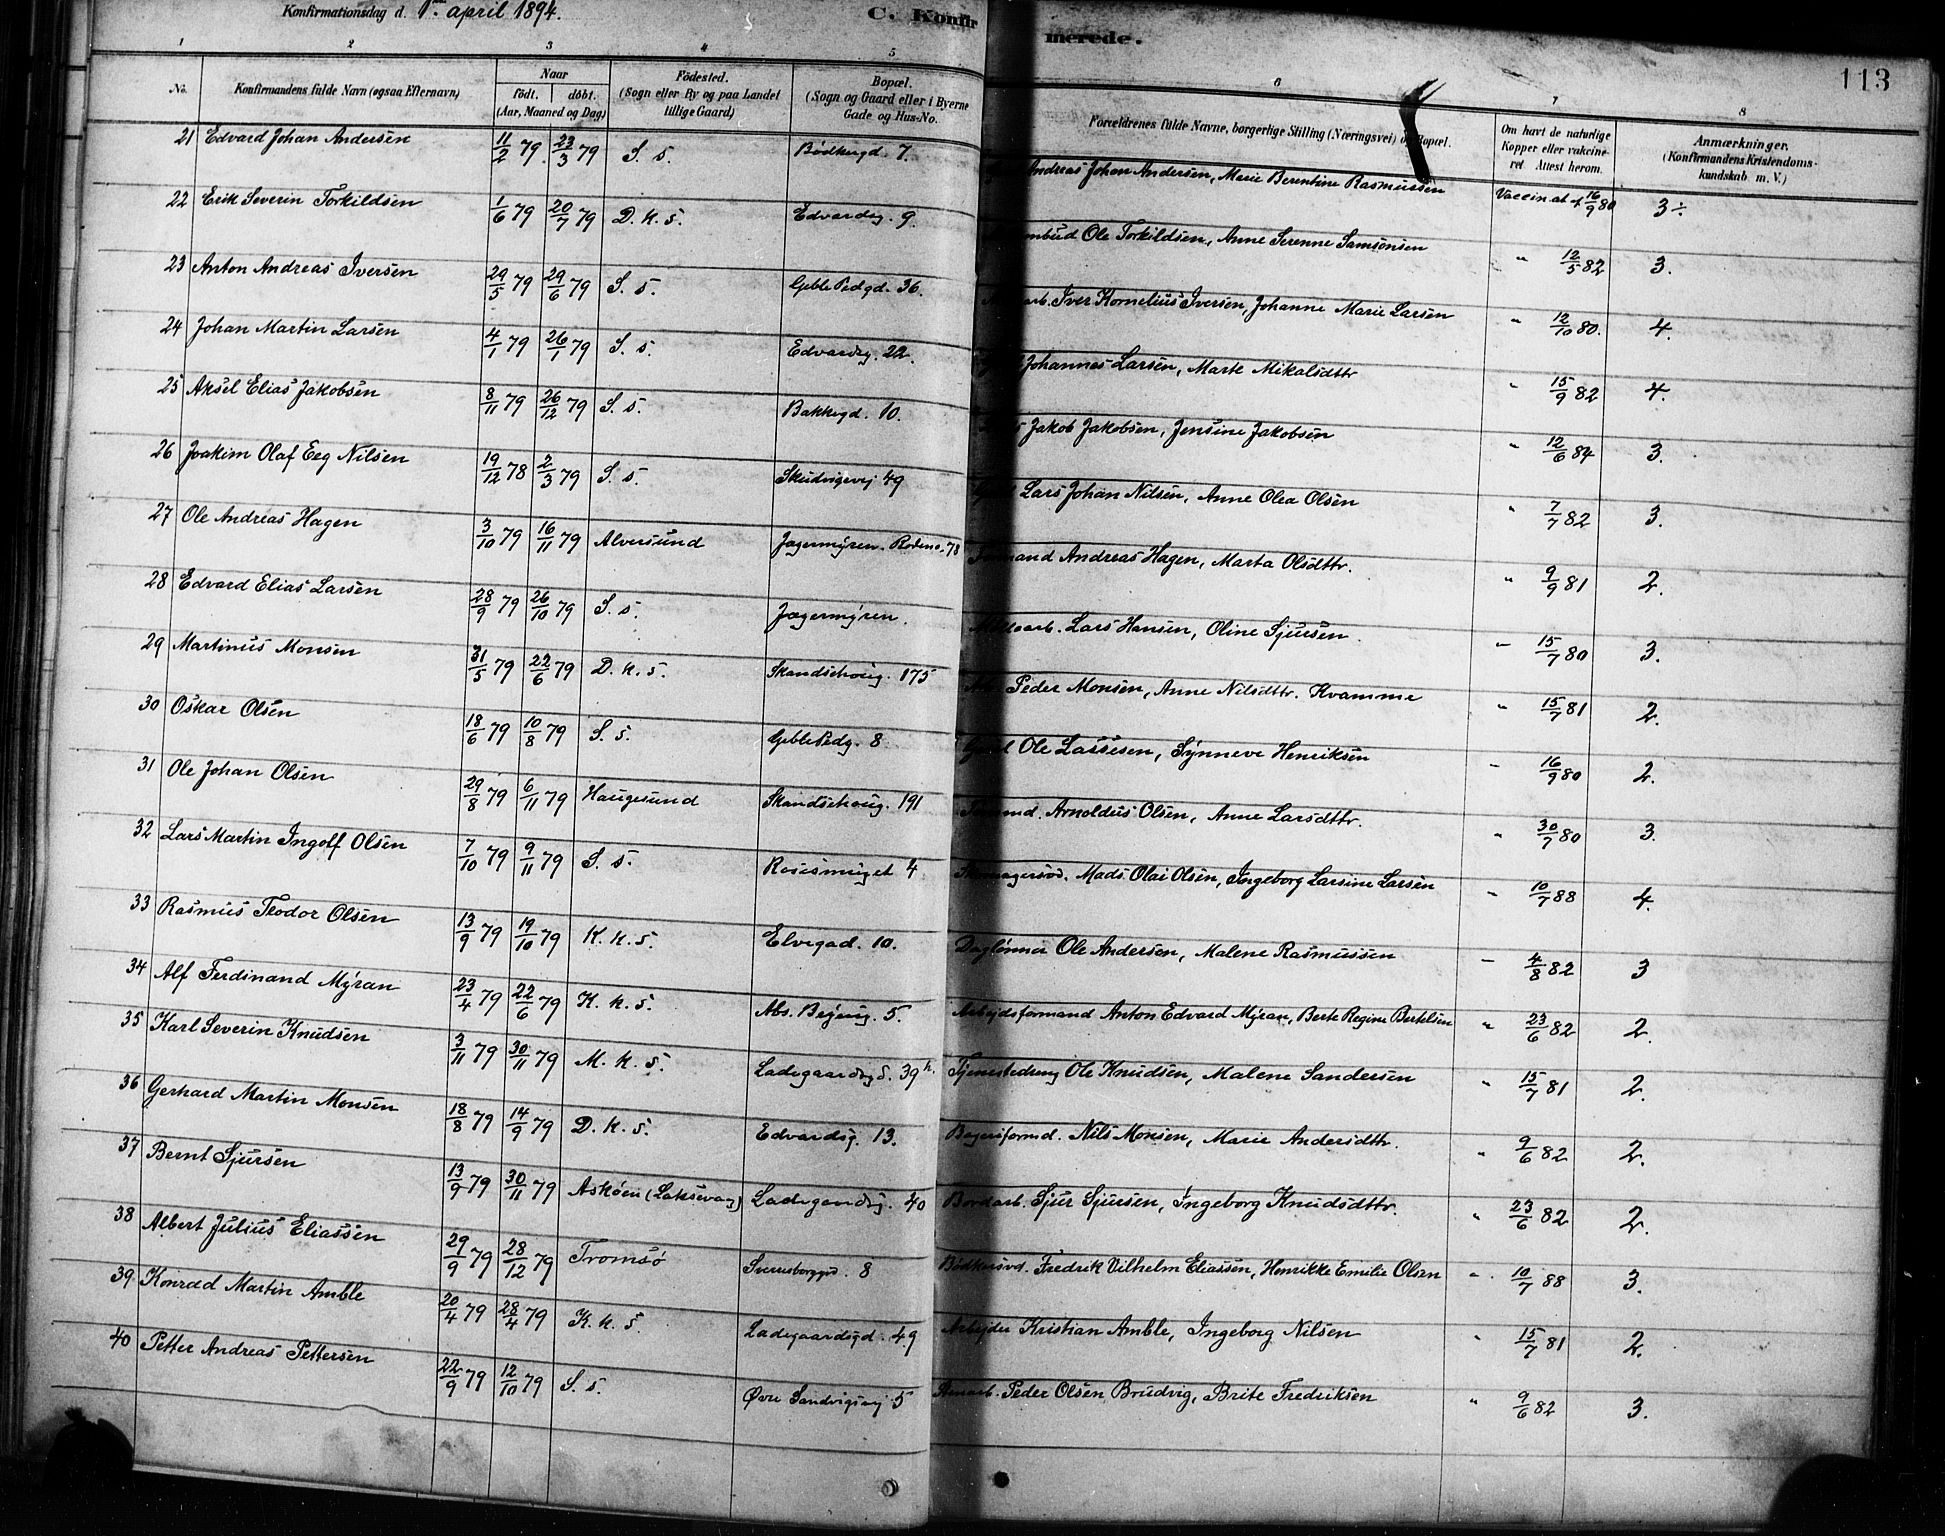 Konfirmationsdag d. 1ste april 1894.
C. Konfirmerede.
113
1 2 3 4 5 6 7 8
No. Konfirmandens fulde Navn (ogsaa Efternavn) Naar født. døbt. (Aar, Maaned og Dag) Fødested. (Sogn eller By og paa Landet tillige Gaard) Bopæl. (Sogn og Gaard eller i Byerne Gade og Hus-No. Forældrenes fulde Navne, borgerlige Stilling (Næringsvei) og Bopæl. Om havt de naturlige Kopper eller vakcineret Attest herom. Anmærkninger. (Konfirmandens Kristendomskundskab m. V.)
21 Edvard Johan Andersen 11/2 79 23/3 79 S. s. Bødkergd. 7. Andreas Johan Andersen, Marie Berentine Rasmussen Vaccin. at. 16/9 80 3÷
22 Erik Severin Torkildsen 1/6 79 20/7 79 D. k. s. Edvardsg. 9. Ole Torkildsen, Anne Serenne Samsonsen " 12/5 82 3.
23 Anton Andreas Iversen 29/5 79 29/6 79 S. s. Geble Pedgd. 36. Iver Kornelius Iversen, Johanne Marie Larsen " 12/10 80. 4.
24 Johan Martin Larsen 4/1 79 26/1 79 S. s. Edvardsg. 22. Johannes Larsen, Marte Mikalsdttr " 15/9 82 4.
25 Aksel Elias Jakobsen 8/11 79 26/12 79 S. s. Bakkegd. 10. Jakob Jakobsen, Jensine Jakobsen " 12/6 84 3.
26 Joakim Olaf Eeg Nilsen 19/12 78 2/3 79 S. s. Skudvigsvej 49 Lars Johan Nilsen, Anne Olea Olsen " 7/7 82 3.
27 Ole Andreas Hagen 3/10 79 16/11 79 Alversund Jægermyren. Rodeno. 78 Andreas Hagen, Marta Olsdttr. " 9/9 81 2.
28 Edvard Elias Larsen 28/9 79 26/10 79 S. s. Jægermyren. Lars Hansen, Oline Sjursen. " 15/7 80 3.
29 Martinus Monsen 31/5 79 22/6 79 D. k. s. Skandsehoug. 175 Peder Monsen, Anne Nilsdttr. Kvamme " 15/7 81 2.
30 Oskar Olsen 18/6 79 10/8 79 S. s. Geble Pedg. 8. Ole Lassesen, Synneve Henriksen " 16/9 80 2.
31 Ole Johan Olsen 29/8 79 6/11 79 Haugesund Skandsehoug. 191 Arnoldus Olsen, Anne Larsdttr. " 30/7 80 3.
32 Lars Martin Ingolf Olsen 7/10 79 9/11 79 S. s. Rosesmuget 4 Skomagersvd. Mads Olai Olsen, Ingeborg Larsine Larsen " 10/7 88 4.
33 Rasmus Teodor Olsen 13/9 79 19/10 79 K. k. s. Elvegad. 10. Daglønner Ole Andersen, Malene Rasmussen " 4/8 82 3
34 Alf Ferdinand Myran 23/4 79 22/6 79 K. k. s. Abs. Beyeng. 5. Arbejdsformand Anton Edvard Myran, Berte Regine Bertelsen " 23/6 82 2.
35 Karl Severin Knudsen 3/11 79 30/11 79 M. k. s. Ladegaardsgd. 39 h. Tjenestedreng Ole Knudsen, Malene Sandersen " 15/7 81 2.
36 Gerhard Martin Monsen 18/8 79 14/9 79 D. k. s. Edvardsg. 13. Bagersformd. Nils Monsen, Marie Andersdttr. " 9/6 82 2.
37 Bernt Sjursen 13/9 79 30/11 79 Askøen (Laksevaag) Ladegaardsg. 40 Bordarb. Sjur Sjursen, Ingeborg Knudsdttr. " 23/6 82 2.
38 Albert Julius Eliassen 29/9 79 28/12 79 Tromsø Sverresborggd. 8 Bødkersvd. Fredrik Vilhelm Eliassen, Henrikke Emilie Olsen " 10/7 88 3.
39 Konrad Martin Amble 20/4 79 28/4 79 K. k. s. Ladegaardsgd. 49 Arbejder Kristian Amble, Ingeborg Nilsen " 15/7 81 2.
40 Petter Andreas Pettersen 22/9 79 12/10 79 S. s. Øvre Sandvigsvej 5 Peder Olsen Brudvig, Brite Fredriksen " 9/6 82 3.